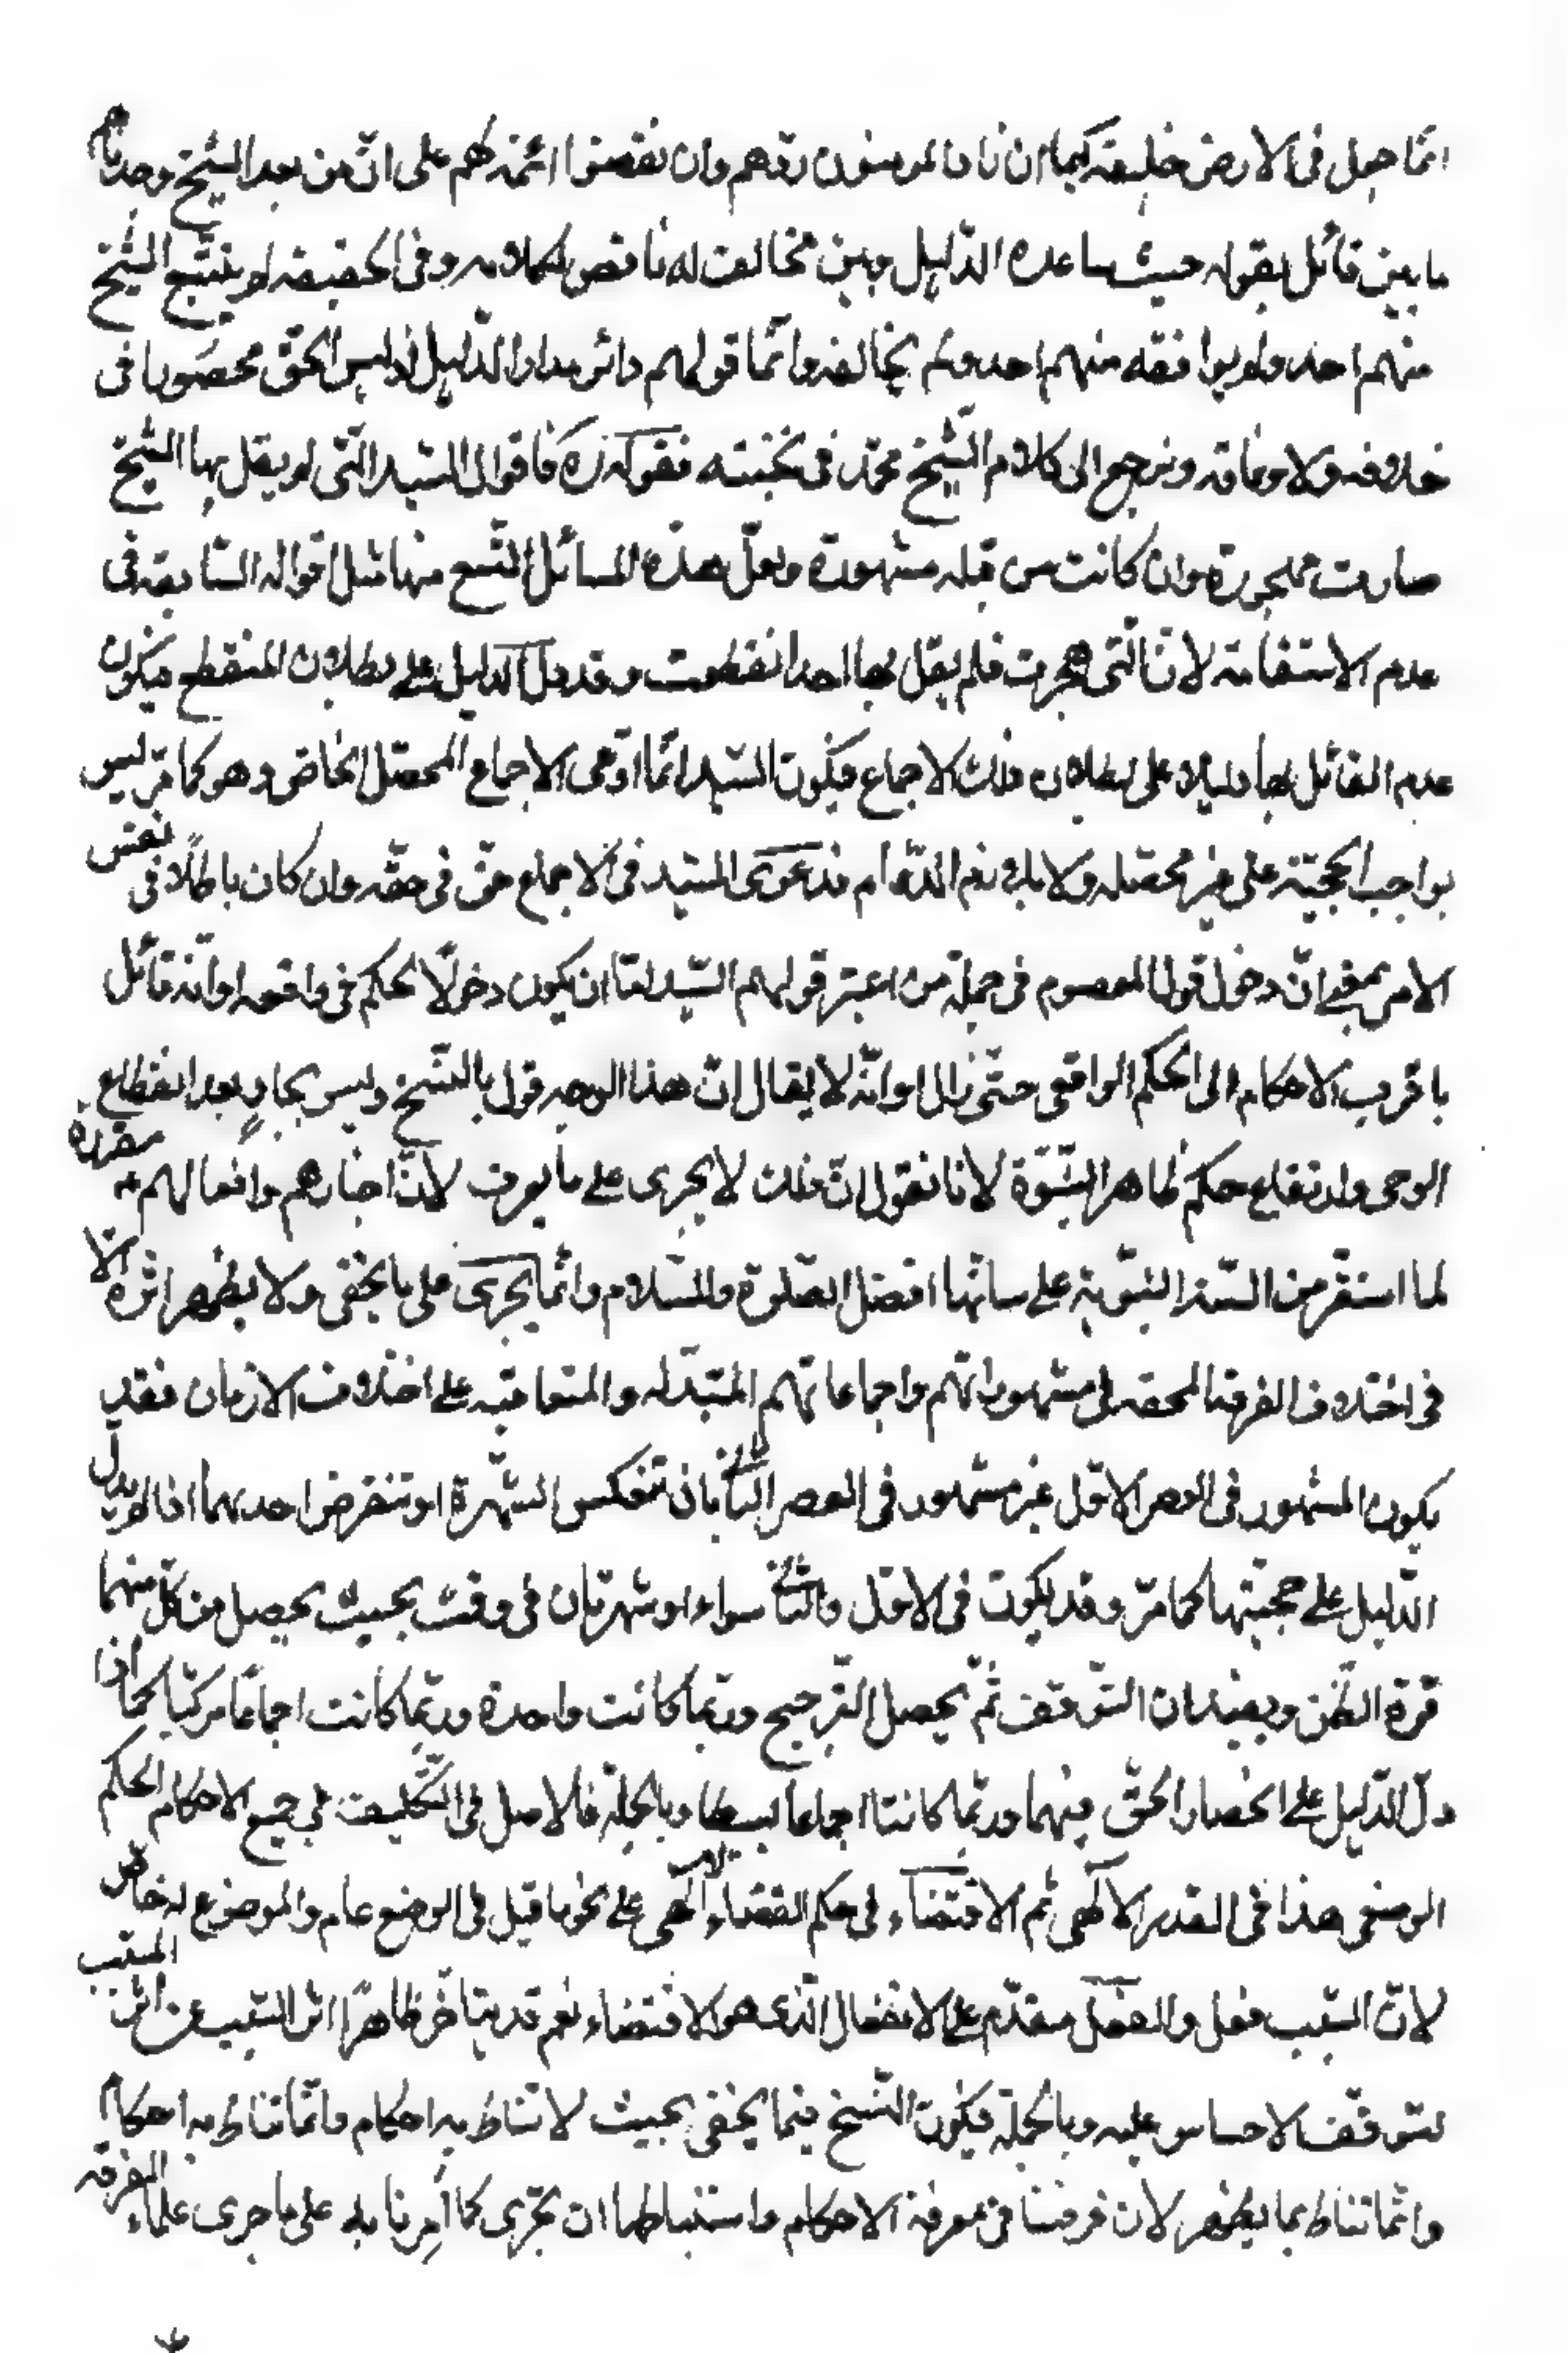 انّما جعل فى الارض خليفة كيما ان زاد المؤمنون ردّهم وان نقصوا اتمّه لهم على انّ من بعد الشيخ وجدناهم
ما بين قائل بقوله حيث ساعده الدّليل وبين مخالف له ناقض لكلامه وفى الحقيقة لو يتّبع الشيخ
منهم احد ولو يوافقه منهم احد ولم يخالفه وانّما قولهم دائر مدار الدّليل اذ ليس الحقّ محصورا فى
خلافه ولا وفاقه ونرجع الى كلام الشّيخ محمّد فى نخبته فقوله ره فاقوال السّيد الّتى لو يقل بها الشّيخ
صارت مهجورة وان كانت من قبله مشهورة ولعلّ هذه المسائل التّسع منها مثل اقواله السّابقة فى
عدم الاستقامة لانّ الّتى هجرت فلم يقل بها احد انقطعت وقد دلّ الدليل على بطلان المنقطع فيكون
عدم القائل بها دليلا على بطلان ذلك الاجماع فيكون السّيد انّما ادّعى الاجماع المحصّل الخاصّ وهو كما مرّ ليس
بواجب الحجّيّة على غير محصّله ولا يلزم الدّوام فدعوى السّيد فى الاجماع حقّ فى حقّه وان كان باطلًا فى نفس
الامر بمعنى انّ دخول قول المعصوم فى جملة من اعتبر قولهم السّيد امّا ان يكون دخولًا لحكم فى واقعه او انّه قائل
باقرب الاحكام الى الحكم الواقعى حتّى زال او انّه لا يقال انّ هذا الوجه قول بالنّسخ وليس بجارٍ بعد انقطاع
الوحى وارتفاع حكم ظاهر النّبوّة لانا نقول انّ ذلك لا يجرى على ما يعرف لانّ اخبارهم وافعالهم مقرّرة
لما استقرّ من السّنة النّبويّة على سانّها افضل الصّلوة والسّلام وانّما يجرى على ما يخفى ولا يظهر اثره الّا
فى اختلاف الفرقة المحقه فى مشهوراتهم واجماعاتهم المتبدّله والمتعاقبه على اختلاف الازمان فقد
يكون المشهور فى العصر الاوّل غير مشهور فى العصر الثّانى بان تنعكس الشّهرة او تنقرض احدهما اذا لو يدلّ
الدّليل على حجّيّتها كما مرّ وقد يكون فى الاوّل والثّانى سواء او شهرتان فى وقت بحيث يحصل من كلّ منهما
قوّة الظّن ويفيدان التّوقّف ثمّ يحصل التّرجيح وربّما كانت واحدة وربّما كانت اجماعًا مركّبا كما اذا
دلّ الدّليل على انحصار الحقّ فيهما وربّما كانتا اجماعا بسيطا وبالجملة فالاصل فى التّكليف فى جميع الاحكام الحكم
الوضعى هذا فى القدر الالٓهى ثم الاقتضاء فى حكم القضاء الالٓهى على نحو ما قيل فى الوضع عام والموضوع له خاصّ
لانّ السّبب فعل والفعل مقدّم على الانفعال الّذى هو الاقتضاء نعم قد يتاخّر ظاهرًا اثر السّبب عن اثر المسبّب
لتوقّف الاحساس عليه وبالجملة فيكون النّسخ فيما يخفى بحيث لا تناط به احكام وانّما تناط به احكام
وانّما تناط بما يظهر لانّ فرضنا فى معرفة الاحكام واستنباطها ان نجرى كما اُمِرنا به على ما جرى علماء الفرقه